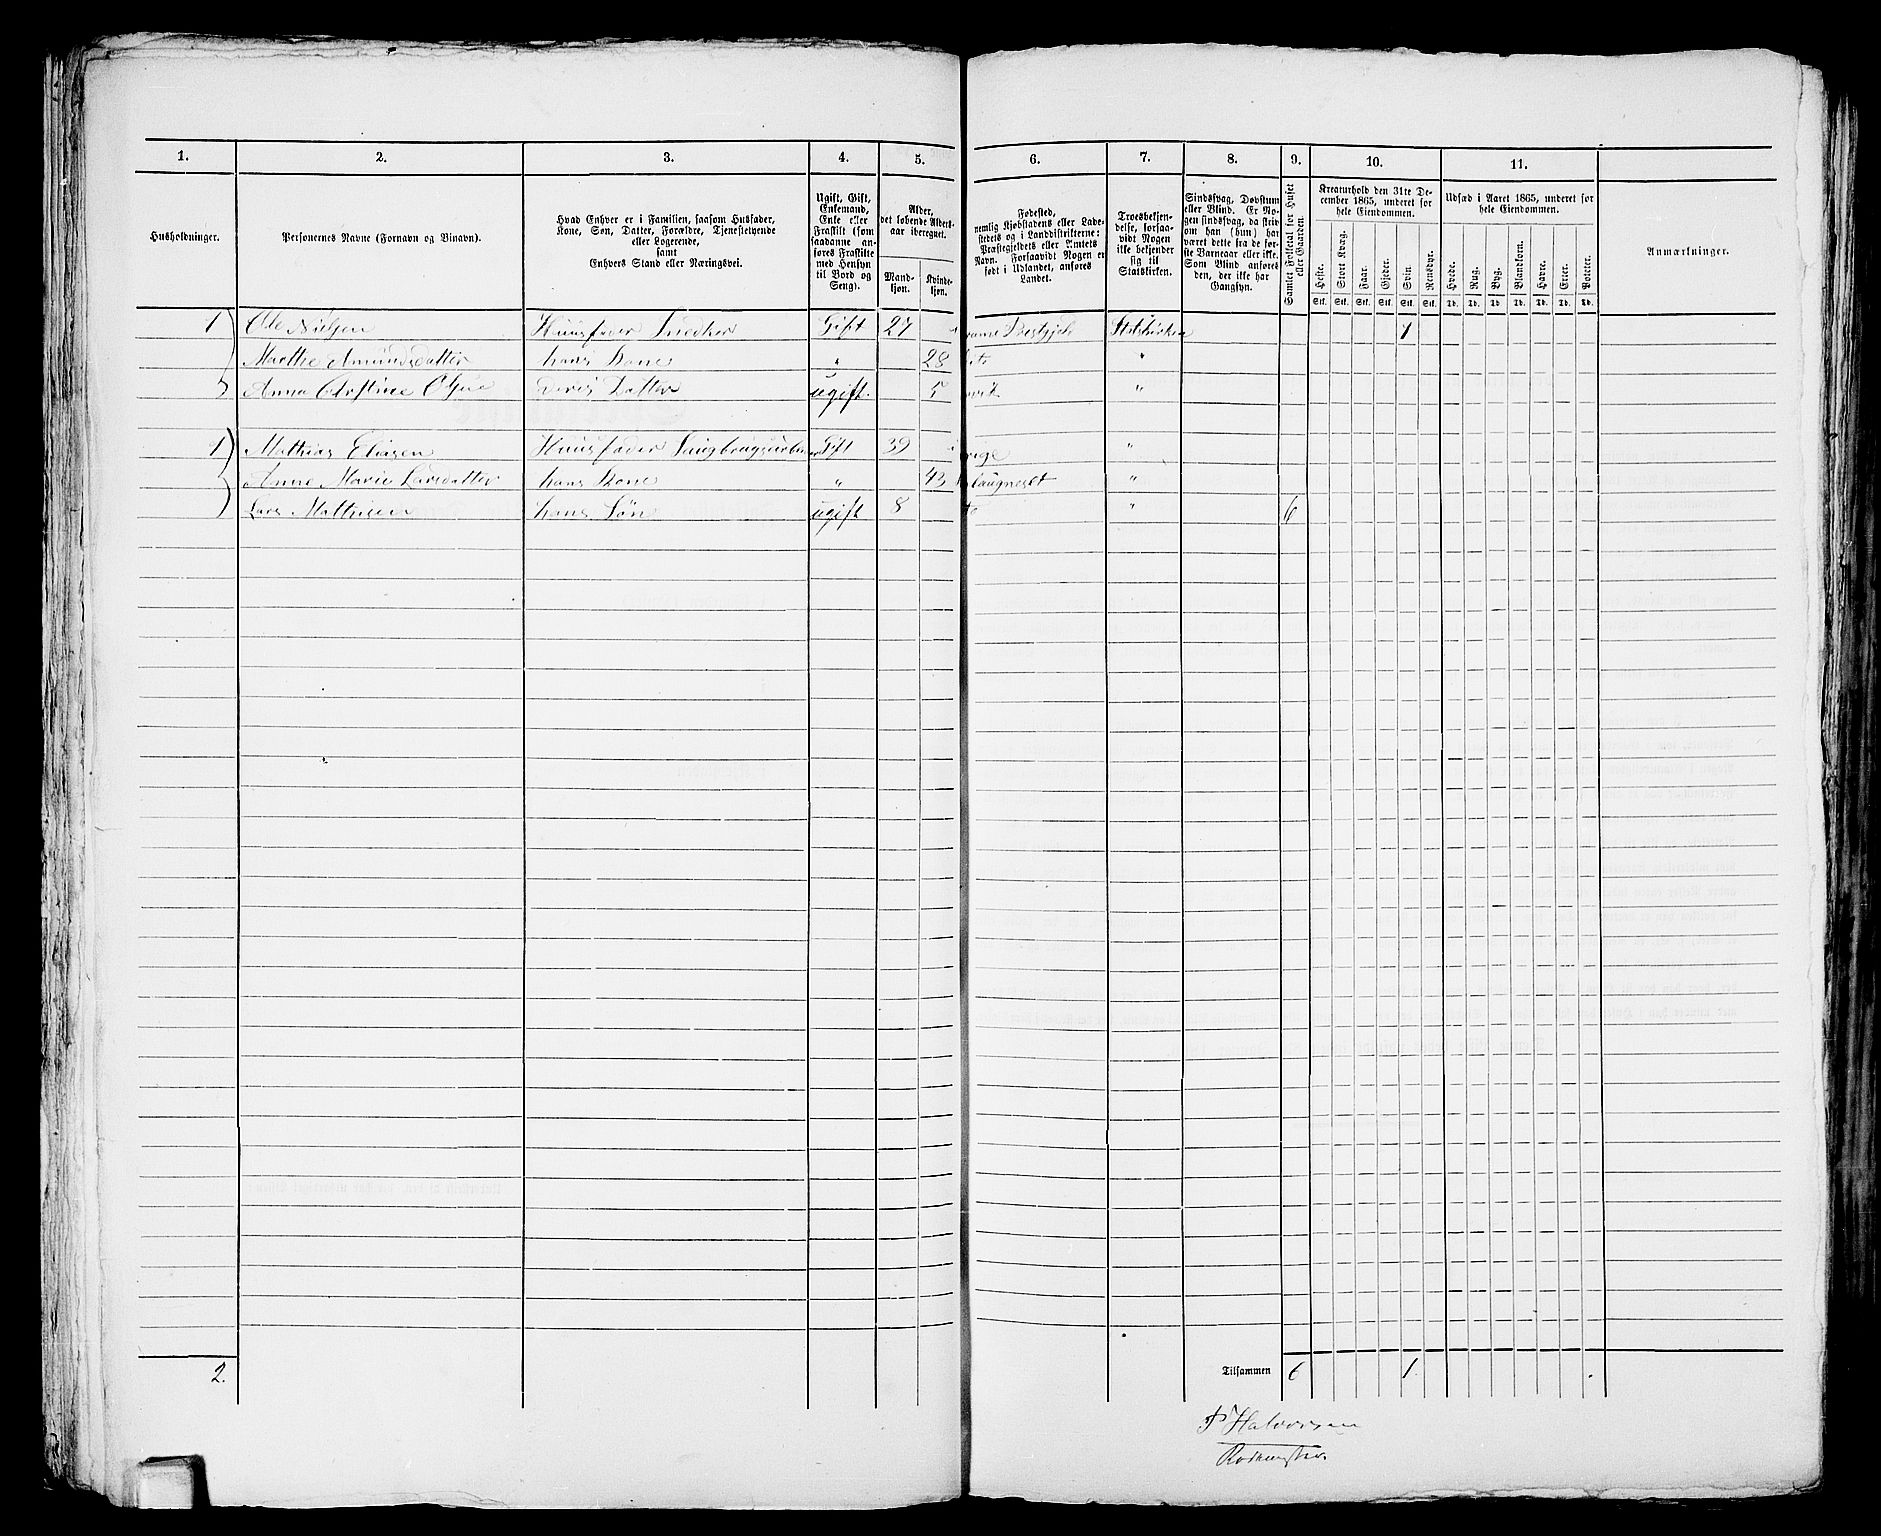 1. 2. 3. 4. 5. 6. 7. 8. 9. 10. 11.
Husholdninger.
Personernes Navne (Fornavn og Binavn).
Hvad Enhver er i Familien, saasom Husfader,
Kone, Søn, Datter, Forældre, Tjenestetyende
eller Logerende,
samt
Enhvers Stand eller Næringsvei.
Ugift, Gift,
Enkemand,
Enke eller
Fraskilt (som
saadanne an-
føres Fraskilte
med Hensyn
til Bord og
Seng).
Alder,
det løbende Alders-
aar iberegnet.
Mand-
kjøn.
Kvinde-
kjøn.
Fødested,
nemlig Kjøbstadens eller Lade-
stedets og i Landdistrikterne:
Præstegjeldets eller Amtets
Navn. Forsaavidt Nogen er
født i Udlandet, anføres
Landet.
Troesbekjen-
delse, forsaa-
vidt Nogen
ikke bekjender
sig til
Statskirken.
Sindssvag, Døvstum
eller Blind. Er No-
gen sindssvag, da skriv
om han (hun) har
været dette fra de før-
ste Barneaar eller ikke.
Som Blind anføres
den, der ikke har
Gangsyn.
Samlet Folketal for Huset
eller Gaarden.
Kreaturhold den 31te De-
cember 1865, underet for
hele Eiendommen.
Heste. Stort Kvæg. Faar. Gjeder. Svin. Rensdyr.
Stk. Stk. Stk. Stk. Stk. Stk.
Udsæd i Aaret 1865, underet for
hele Eiendommen.
Hvede. Rug. Byg. Blandkorn. Havre. Erter. Poteter.
Td. Td. Td. Td. Td. Td. Td.
Anmærkninger.
1 Ole Nielsen Huusfader Snedker Gift 27 Statskirken 1
Marthe Amundsdatter hans Kone " 28 "
Anna Christine Olsen Deres Datter ugift. 5 "
1 Mathias Eliasen Huusfader Gift 39 "
Anne Marie Larsdatter hans Kone " 43 "
Lars Mathisen hans Søn ugift 8 " 6
2. Tilsammen 6 1.
P Halvorsen
Rodemester